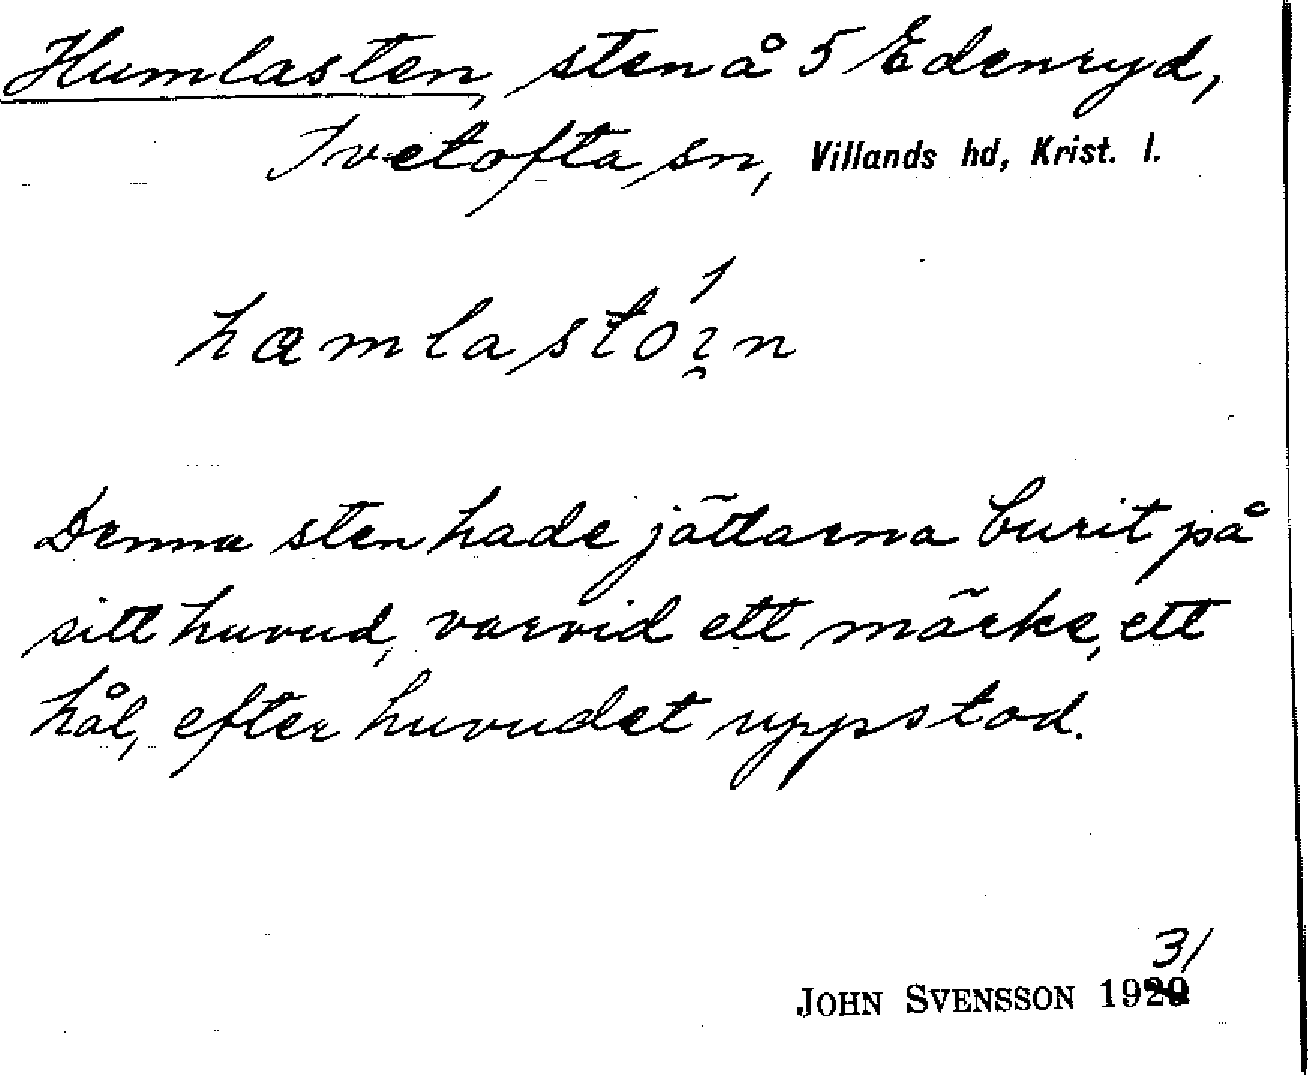 Humlasten, sten å 5 Edenryd,
Ivetofta sn, Villands hd, Krist. l.
hamlastóı̯n
Denna sten hade jättarna burit på
sitt huvud, varvid ett märke, ett
hål, efter huvudet uppstod.
31
JOHN SVENSSON 1929